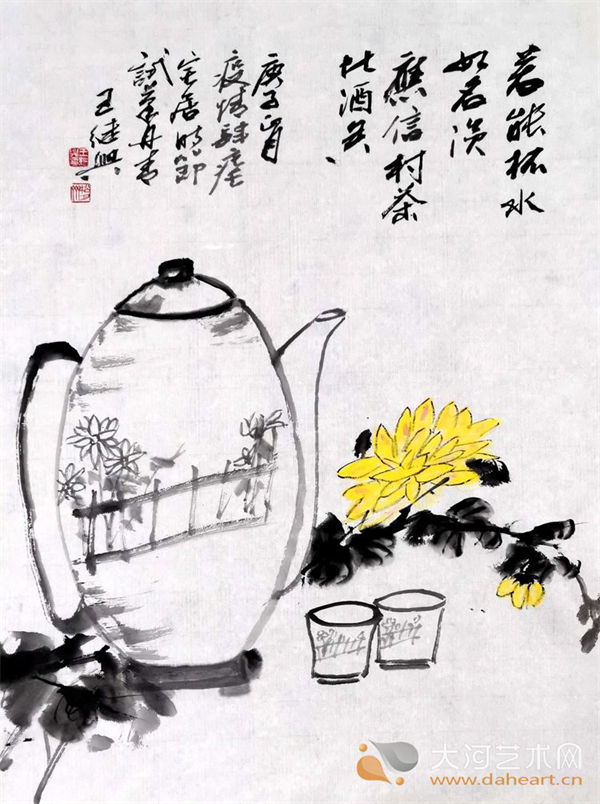 若能杯水
如名淡
應信村茶
比酒香
庚子
疫情肆虐
宅居時節
試筆丹青
王继興
大河艺术网
www.daheart.cn